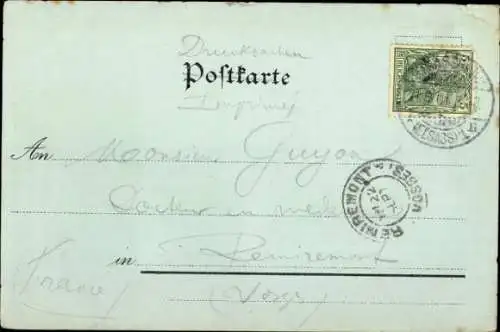 Drucksachen
Postkarte
Imprimés
An Monsieur Guyon
Docteur en
in Remiremont
(France) (Vosges)
REMIREMONT VOSGES